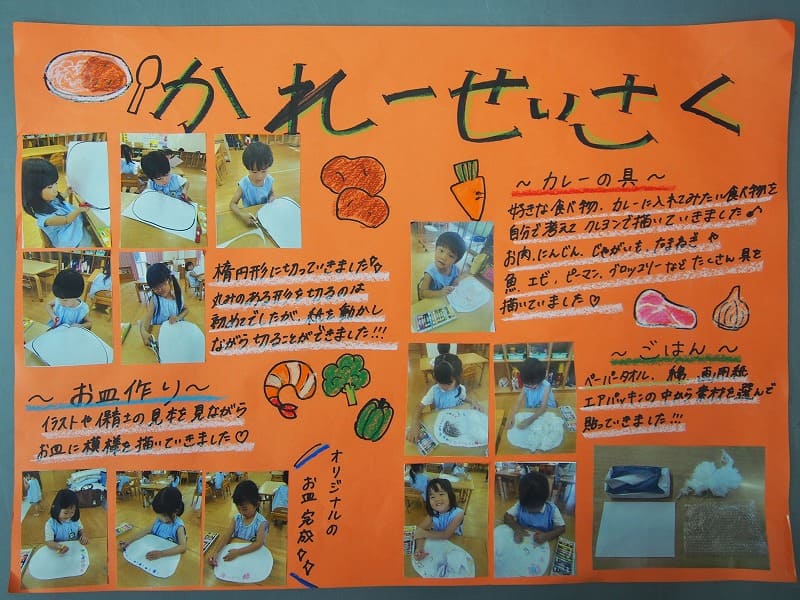 かれーせいさく
楕円形に切っていきました♪
丸みのある形を切るのは
初めてでしたが、紙を動かし
ながら切ることができました!!!
～お皿作り～
イラストや保育士の見本を見ながら
お皿に模様を描いていきました♡
オリジナルの
お皿完成♪♪
～カレーの具～
好きな食べ物、カレーに入れてみたい食べ物を
自分で考えてクレヨンで描いていきました♪
お肉、にんじん、じゃがいも、たまねぎや
魚、エビ、ピーマン、ブロッコリーなどたくさん具を
描いていました♡
～ごはん～
ペーパータオル、綿、画用紙
エアパッキンの中から素材を選んで
貼っていきました!!!